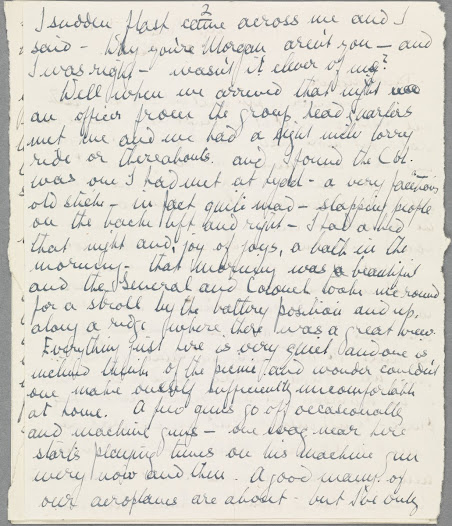 2
I sudden flash came across me and I
said - Why you're Morgan aren't you - and
I was right - wasn't it clever of me?
Well when we arrived that night
an officer from the group head quarters
met me and we had a eight mile lorry
ride or thereabouts. and I found the Col.
was one I had met at Lydd - a very facetious
old stick - in fact quite mad - slapping people
on the back left and right - I had a bed
that night and, joy of joys, a bath in the
morning - that morning was a beautiful
and the General and Colonel took me round
for a stroll by the battery position and up
along a ridge where there was a great view.
Everything just here is very quiet and one is
inclined think of the picnic and wonder couldn't
one make oneself sufficiently uncomfortable
at home. A few guns go off occasionally
and machine guns - one wag near here
starts playing tunes on his machine gun
every now and then. A good many of
our aeroplanes are about - but I've only